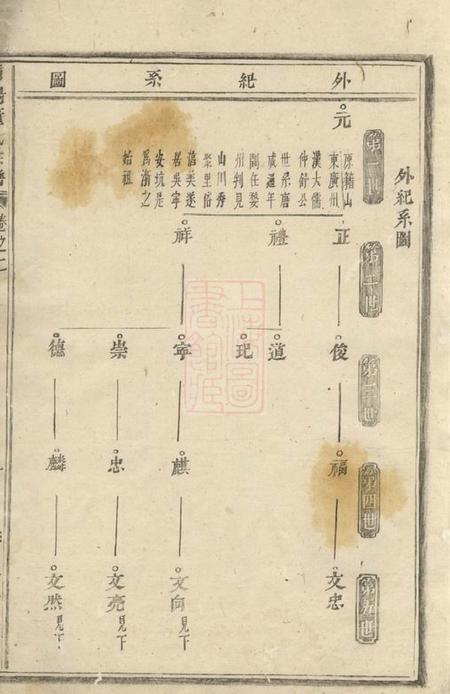 外紀系圖
外紀系圖
第一世
元
原籍山
東廣州
漢大儒
仲舒公
世系唐
咸通年
間任婺
州判見
山川秀
聚里俗
淳美遂
居吳寧
安坑是
爲浙之
始祖
第二世
正
禮
祥
第三世
俊
道
玘
寧
崇
德
第四世
福
麒
忠
麟
第五世
文忠
文向見下
文亮見下
文然見下
卷之一